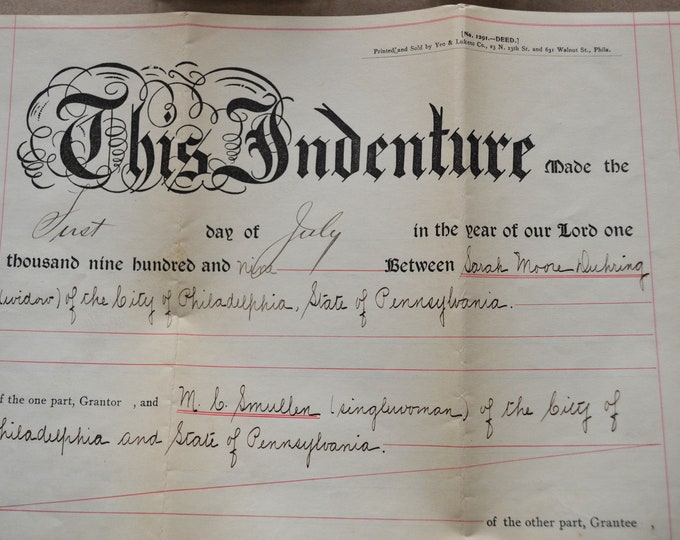 [No. 1291.—DEED.]
Printed and Sold by Yeo & Lukens Co., 23 N. 13th St. and 631 Walnut St., Phila.
This Indenture Made the
First day of July in the year of our Lord one
thousand nine hundred and nine Between Sarah Moore Duhring
(widow) of the City of Philadelphia, State of Pennsylvania.
of the one part, Grantor , and M. C. Smullen (singlewoman) of the City of
Philadelphia and State of Pennsylvania.
of the other part, Grantee ,